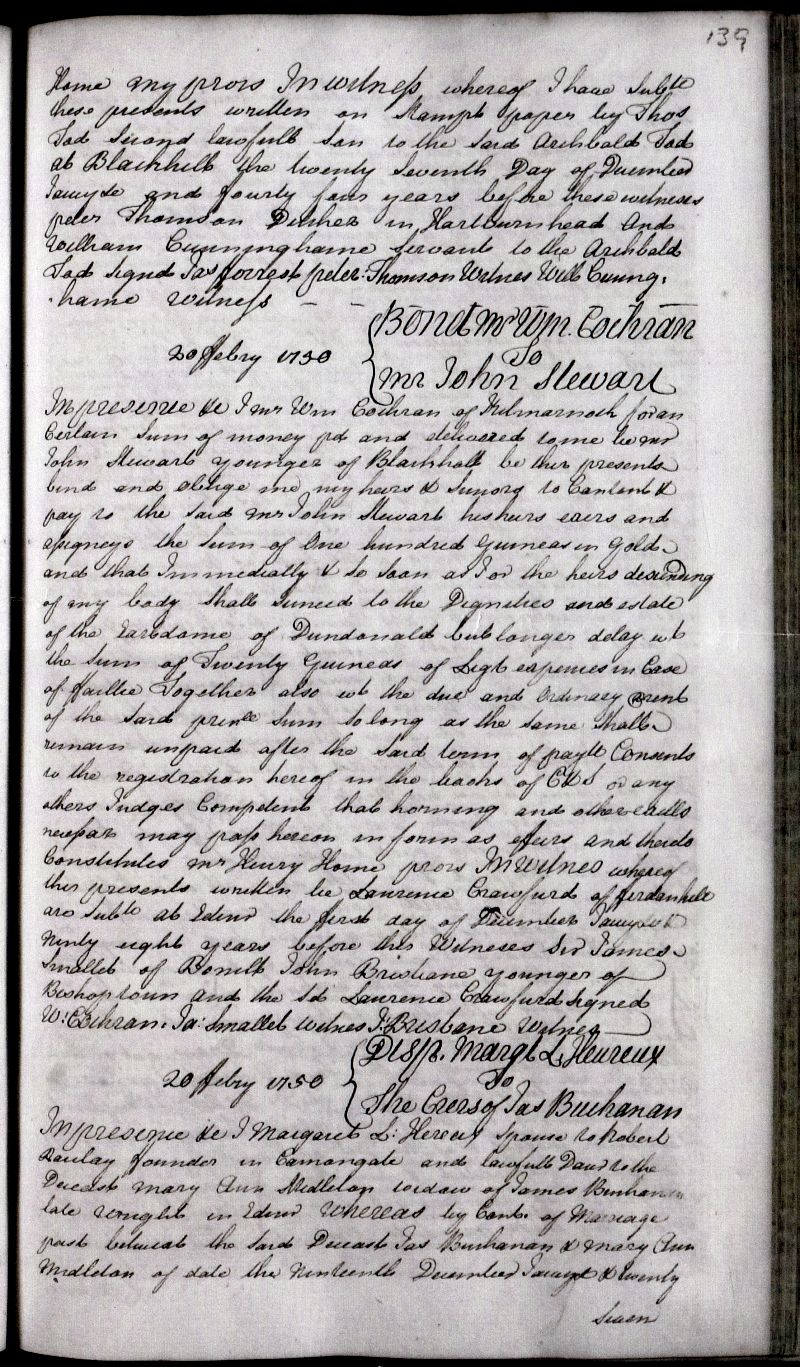 139
Home my prors In witness whereof I have Subte
these presents written on Stampt paper by Thos
Tod Second lawfull Son to the said Archbald Tod
at Blackhill the twenty Seventh Day of December
Jajvye and fourty four years before these witnesses
peter Thomson in Hartburnhead And
William Cunninghame Servant to the Archbald
Tod Signd Jas forrest peter Thomson Witnes Will Cuning,
hame Witness
Bond Mr Wm. Cochran
20 ffebry 1750 To
Mr John Stewart
In presence &c I Mr Wm Cochran of Kilmarnock for an
Certain Sum of money pd and delivered to me be Mr
John Stewart younger of Blackhall be thir presents
bind and obliege me my heirs & to Content &
pay to the said Mr John Stewart his heirs exers and
assigneys the Sum of One hundred Guineas in Gold
and that Immediatly & so soon as I or the heirs descending
of my body Shall Succeed to the Dignities and estate
of the Earldome of Dundonald but longer delay wt
the Sum of Twenty Guineas of Liqt expences in Case
of faillie Together also wt the due and Ordinary @rent
of the said prinle Sum so long as the same Shall
remain unpaid after the said term of payt Consents
to the registration hereof in the books of C&S or any
others Judges Competent that horning and other exells
necessar may pass hereon in form as effeirs and thereto
Constitutes Mr Henry Home prors In Witnes whereof
thir presents written be Laurence Crawfurd of Jordanhill
are Subte at Edinr the first day of December
Ninty eight years before thir Witneses Sir James
Smallet of Bonill John Brisbane younger of
Bishoptoun And the sd Laurence Crawfurd Signed
W: Cochran. Ja: Smallet witnes J: Brisbane Witnes
Disp. Margt L. Heureux
20 ffebry 1750 To
The Crers of Jas Buchanan
In presence &c I Margaret L: Hereux Spouse to Robert
Barclay founder in Canongate and lawfull Daur to the
Deceast Mary Ann Midleton widow of James Buchanan
late Wright in Edinr Whereas by Cont. of Mariage
past betwixt the Said Deceast Jas Buchanan & Mary Ann
Midleton of date the Ninteenth December Jajvye & twenty
Seven